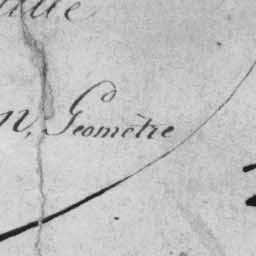 n, Geomètre